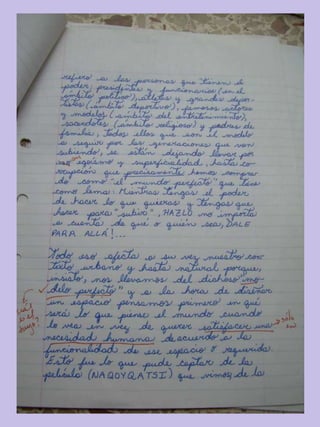 refiero a las personas que tienen el
poder: presidentes y funcionarios (en el
ámbito político), atletas y grandes depor-
tistas (ámbito deportivo), famosos actores
y modelos (ámbito del entretenimiento),
sacerdotes (ámbito religioso) y padres de
familia, todos ellos que son el modelo
a seguir por las generaciones que van
subiendo, se están dejando llevar por
ese egoísmo y superficialidad, hasta co-
rrupción que precisamente hemos compra-
do como "el mundo perfecto" que tiene
como lema: Mientras tengas el poder
de hacer lo que quieras y tengas que
hacer para "subir", HAZLO no importa
a cuenta de qué o quién sea, DALE
PARA ALLÁ!...
Todo eso afecta a su vez nuestro con-
texto urbano y hasta natural porque,
insisto, nos llevamos del dichoso "mo-
delo perfecto" y a la hora de diseñar
un espacio pensamos primero en qué
será lo que piense el mundo cuando
lo vea en vez de querer satisfacer una
necesidad humana de acuerdo a la
funcionalidad de ese espacio requerida.
Esto fue lo que pude captar de la
película (NAQOYQATSI) que vimos, de la